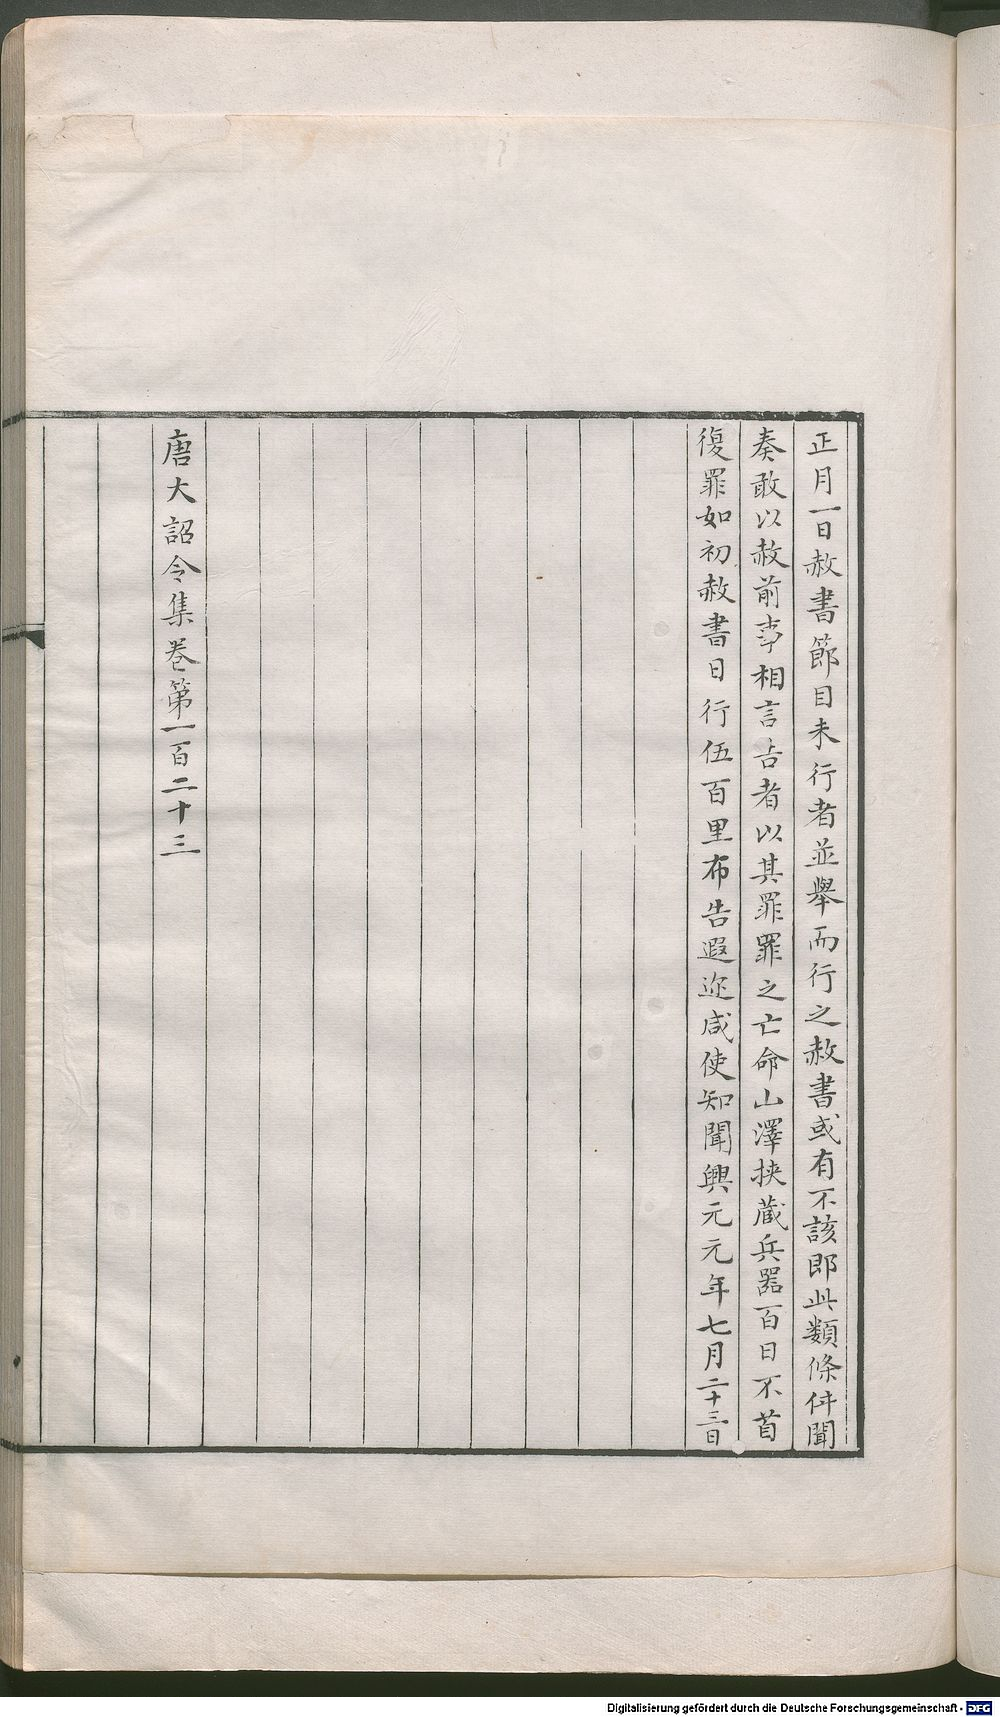 正月一日赦書節目未行者並舉而行之赦書或有不該即此類條件聞
奏敢以赦前事相言告者以其罪罪之亡命山澤挾藏兵器百日不首
復罪如初赦書日行伍百里布告遐迩咸使知聞興元元年七月二十三日
唐大詔令集卷第一百二十三
Digitalisierung gefördert durch die Deutsche Forschungsgemeinschaft - DFG